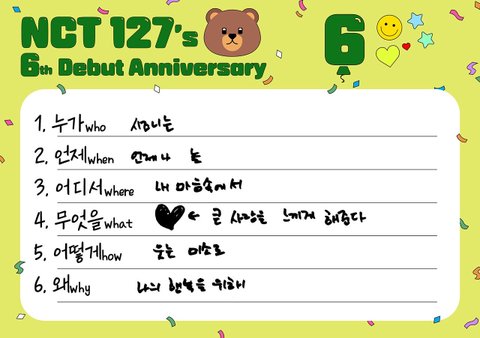 NCT 127's
6th Debut Anniversary
6
1. 누가who 시즈니는
2. 언제when 언제나 늘
3. 어디서where 내 마음속에서
4. 무엇을what ♥ ← 큰 사랑을 느끼게 해준다
5. 어떻게how 웃는 미소로
6. 왜why 나의 행복을 위해